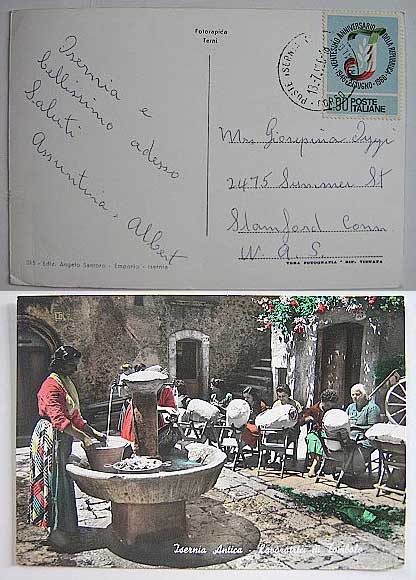 Fotorapida
Terni
Isernia e
bellissimo adesso
Saluti
Assuntina, Albert
VENTESIMO ANNIVERSARIO DELLA REPUBBLICA
1946 2 GIUGNO 1966
90 POSTE
ITALIANE
POSTE ISERNIA
Mrs Giosepina Izzi
2475 Summer St
Stamford Conn
U.S.A.
515 - Ediz. Angelo Santoro - Emporio - Isernia
VERA FOTOGRAFIA
Isernia Antica - Lavoratrici di Tombolo